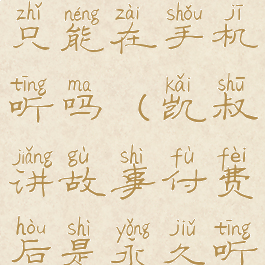 zhǐ néng zài shǒu jī
只能在手机
tīng ma kǎi shū
听吗（凯叔
jiǎng gù shì fù fèi
讲故事付费
hòu shì yǒng jiǔ tīng
后是永久听